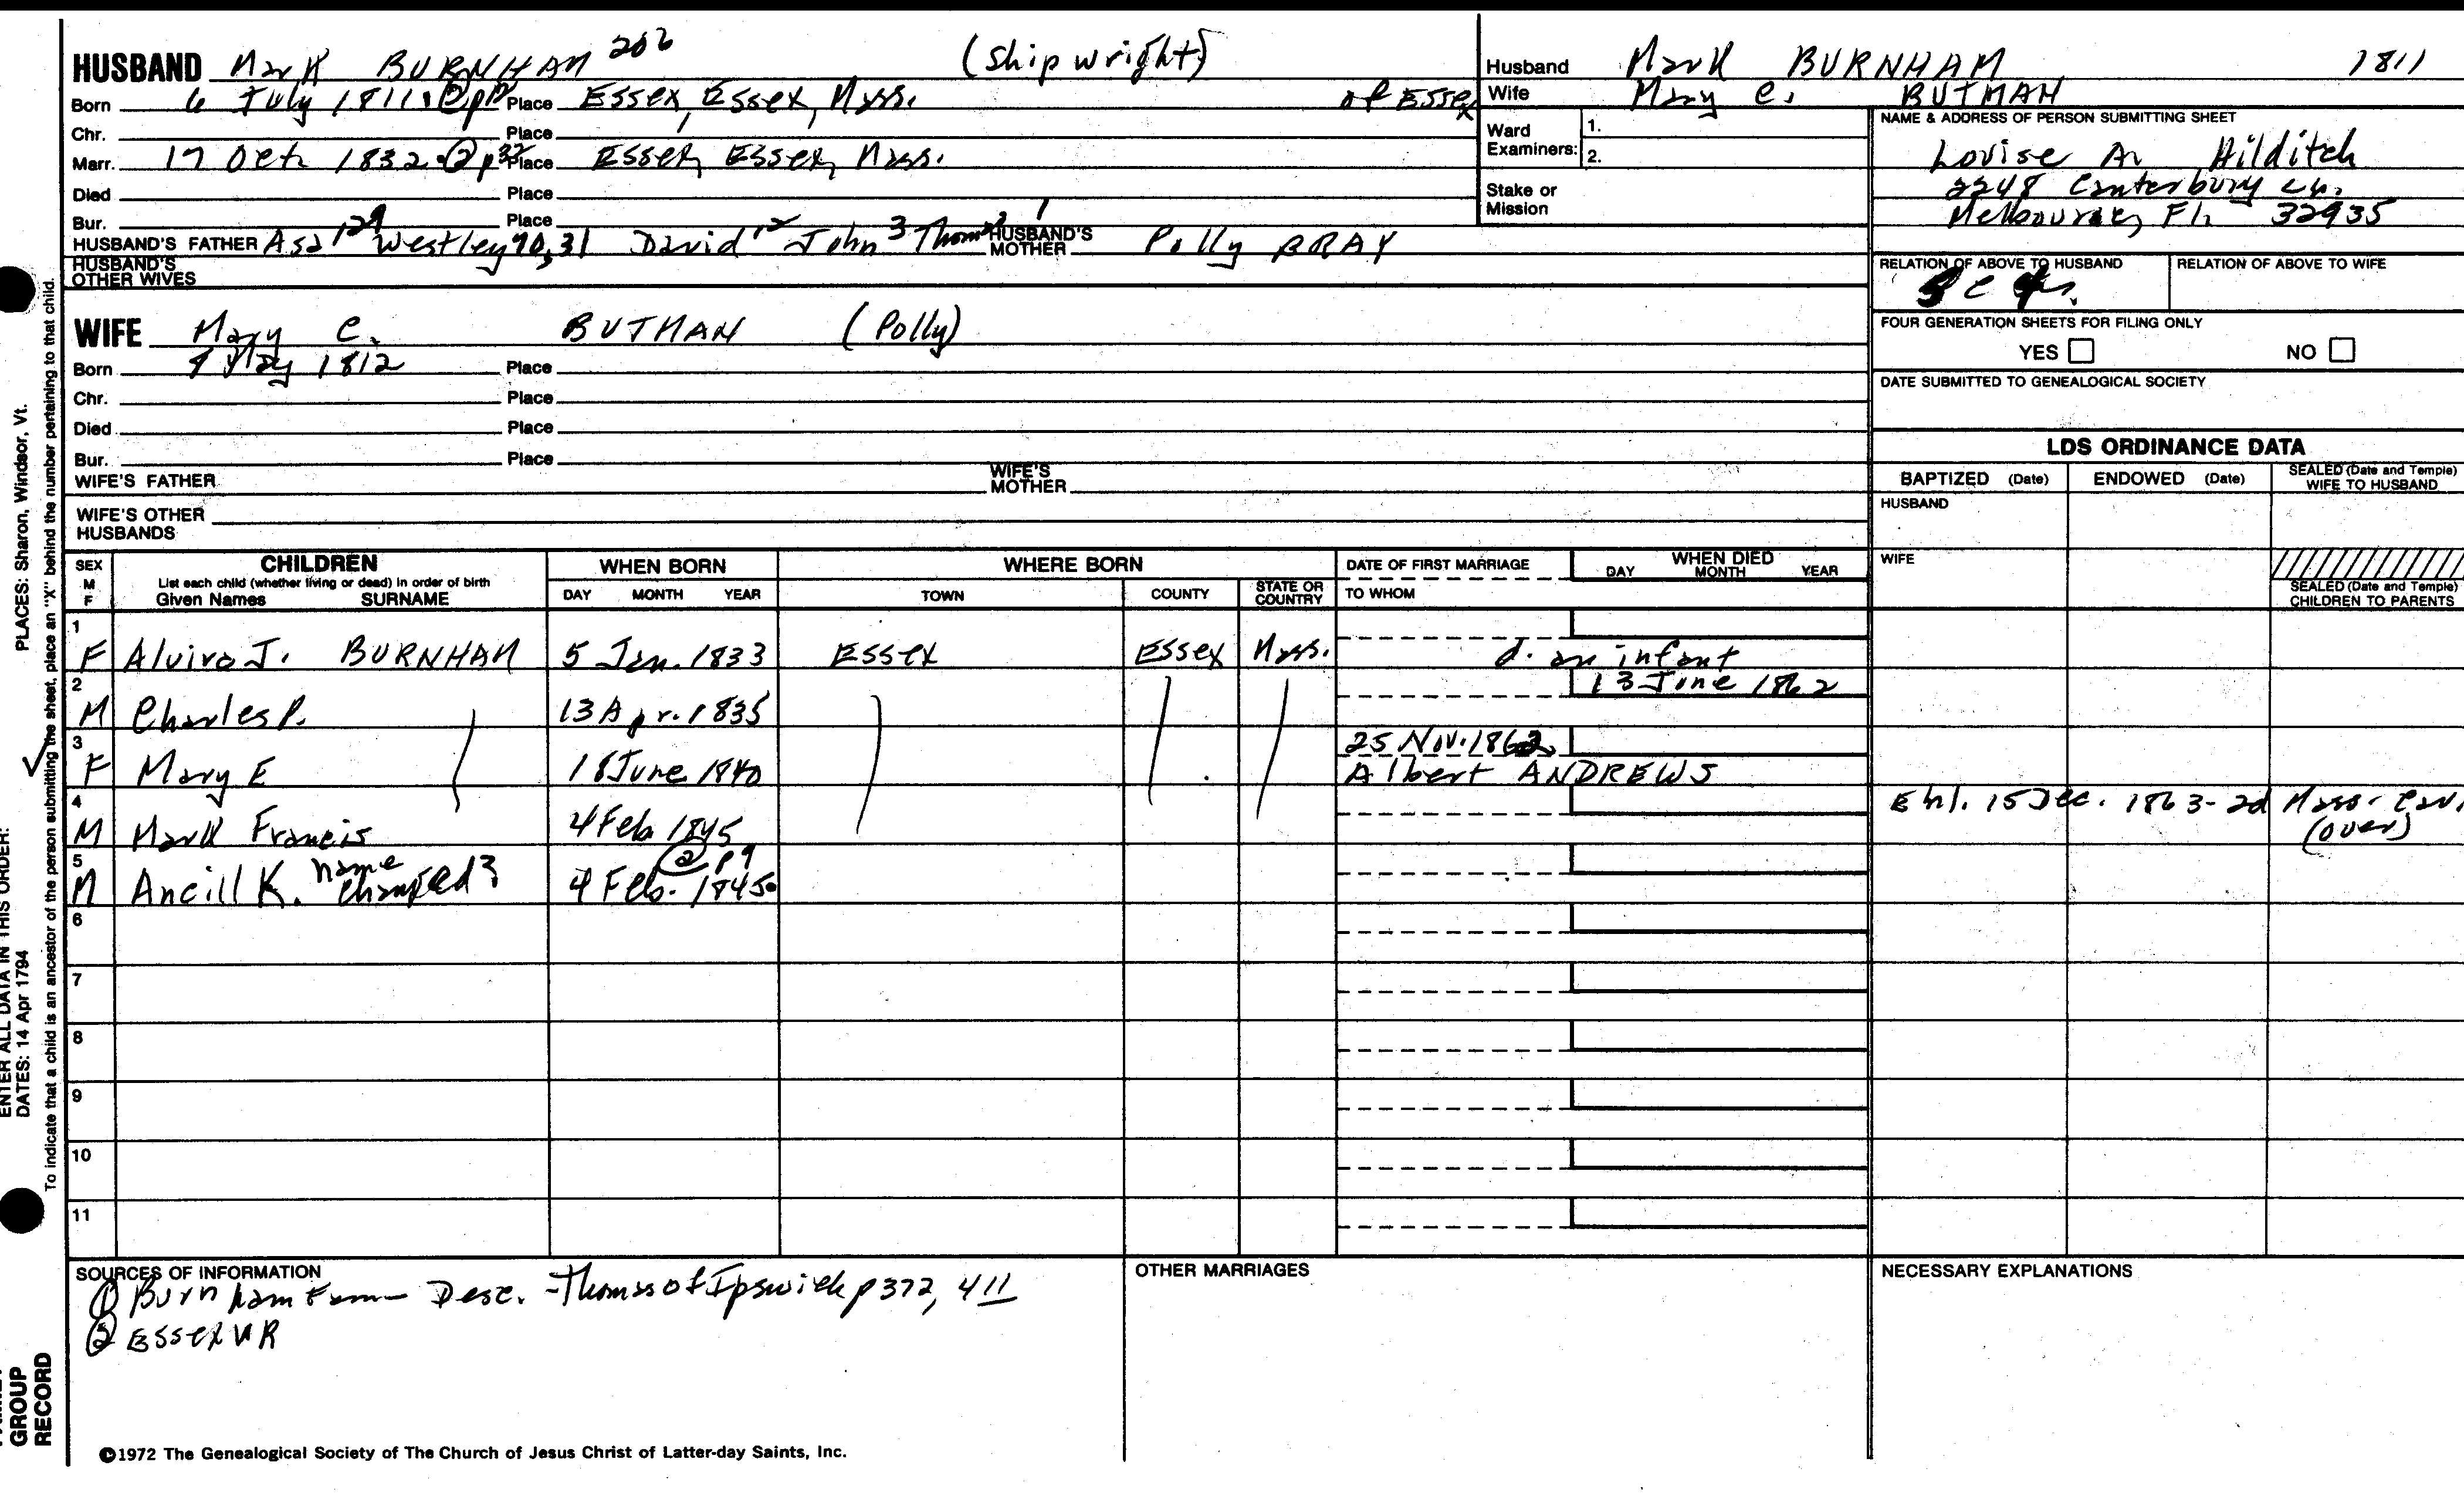 HUSBAND Mark BURNHAM 206 (Shipwright)
Born 6 July 1811 Place Essex, Essex, Mass. of Essex
Chr. Place
Marr. 17 Oct. 1832 Place Essex, Essex, Mass.
Died Place
Bur. Place
HUSBAND'S FATHER Asa 129 Westley 70, 31 David 12 John 3 Thomas 1 HUSBAND'S MOTHER Polly BRAY
HUSBAND'S OTHER WIVES
Husband Mark BURNHAM 1811
Wife Mary C. BUTMAN
Ward Examiners: 1.
2.
Stake or Mission
NAME & ADDRESS OF PERSON SUBMITTING SHEET
Lovise A. Hilditch
2248 Canterbury Ln.
Melbourne, Fl. 32935
RELATION OF ABOVE TO HUSBAND RELATION OF ABOVE TO WIFE
FOUR GENERATION SHEETS FOR FILING ONLY
YES NO
DATE SUBMITTED TO GENEALOGICAL SOCIETY
WIFE Mary C. BUTMAN (Polly)
Born 9 May 1812 Place
Chr. Place
Died Place
Bur. Place
WIFE'S FATHER WIFE'S MOTHER
WIFE'S OTHER HUSBANDS
LDS ORDINANCE DATA
BAPTIZED (Date) ENDOWED (Date) SEALED (Date and Temple) WIFE TO HUSBAND
HUSBAND
WIFE
SEALED (Date and Temple) CHILDREN TO PARENTS
SEX M F CHILDREN WHEN BORN WHERE BORN DATE OF FIRST MARRIAGE WHEN DIED
List each child (whether living or dead) in order of birth
Given Names SURNAME DAY MONTH YEAR TOWN COUNTY STATE OR COUNTRY TO WHOM DAY MONTH YEAR
1
F Alvira J. BURNHAM 5 Jan. 1833 Essex Essex Mass. d. an infant
2 13 June 1862
M Charles P. 13 Apr. 1835
3 25 Nov. 1862
F Mary E 18 June 1840 Albert ANDREWS
4 Enl. 15 Dec. 1863 - 2d Mass. Cav.
M Mark Francis 4 Feb 1845 (over)
5 name ② p9
M Ancill K. changed? 4 Feb. 1845
6
7
8
9
10
11
SOURCES OF INFORMATION
① Burnham Fam - Desc. - Thomas of Ipswich p 372, 411
② Essex VR
OTHER MARRIAGES
NECESSARY EXPLANATIONS
©1972 The Genealogical Society of The Church of Jesus Christ of Latter-day Saints, Inc.
ENTER ALL DATA IN THIS ORDER:
DATES: 14 Apr 1794 PLACES: Sharon, Windsor, Vt.
To indicate that a child is an ancestor of the person submitting the sheet, place an "X" behind the number pertaining to that child.
GROUP
RECORD